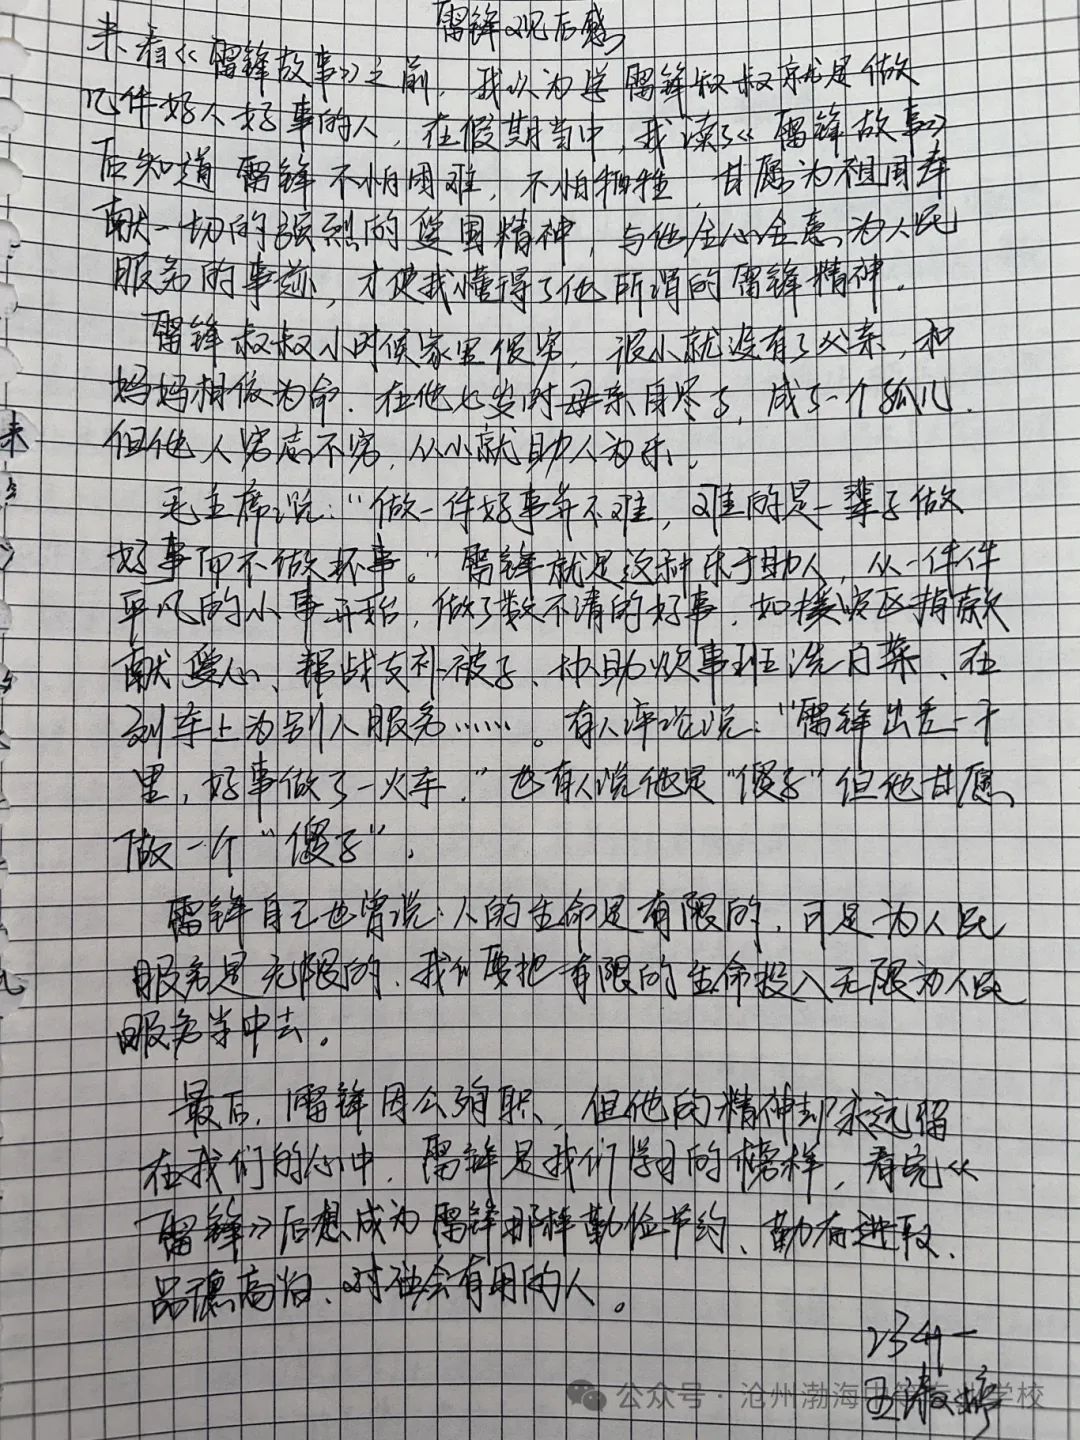 雷锋观后感
未看《雷锋故事》之前，我以为学雷锋叔叔就是做
几件好人好事的人，在假期当中，我读了《雷锋故事》
后知道雷锋不怕困难，不怕牺牲，甘愿为祖国奉
献一切的强烈的爱国精神，与他全心全意为人民
服务的事迹，才使我懂得了他所谓的雷锋精神。
雷锋叔叔小时候家里很穷，很小就没有了父亲，和
妈妈相依为命．在他七岁时母亲自尽了，成了一个孤儿．
但他人穷志不穷，从小就助人为乐。
毛主席说："做一件好事并不难，难的是一辈子做
好事而不做坏事。"雷锋就是这种乐于助人，从一件件
平凡的小事开始，做了数不清的好事，如接灾区捐款
献爱心、帮战友补被子、协助炊事班洗白菜、在
列车上为别人服务……。有人评论说："雷锋出差一千
里，好事做了一火车．"也有人说他是"傻子"但他甘愿
做一个"傻子"．
雷锋自己也曾说：人的生命是有限的，可是为人民
服务是无限的．我们要把有限的生命投入无限为人民
服务当中去。
最后，雷锋因公殉职，但他的精神却永远留
在我们的心中，雷锋是我们学习的榜样，看完《
雷锋》后想成为雷锋那样勤俭节约、勤奋进取、
品德高尚、对社会有用的人。
23升一
王淑婷
公众号·沧州渤海中等专业学校